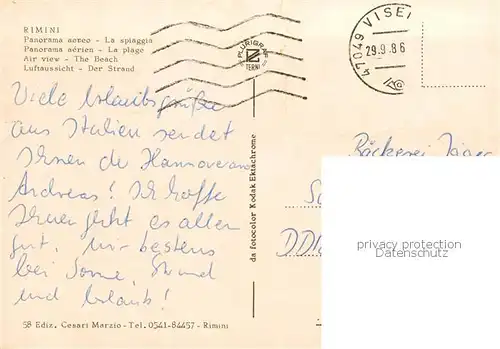 RIMINI
Panorama aereo - La spiaggia
Panorama aérien - La plage
Air view - The Beach
Luftaussicht - Der Strand
PLURIGRAF
TERNI
47049 VISE
29.9.86
Viele Urlaubsgrüße
aus Italien sendet
Ihnen der Hannoveraner
Andreas! Ich hoffe
Ihnen geht es allen
gut, mir bestens
bei Sonne, Strand
und Urlaub!
Bäckerei Jäger
DDR
da fotocolor Kodak Ektachrome
privacy protection
Datenschutz
58 Ediz. Cesari Marzio - Tel. 0541-84457 - Rimini